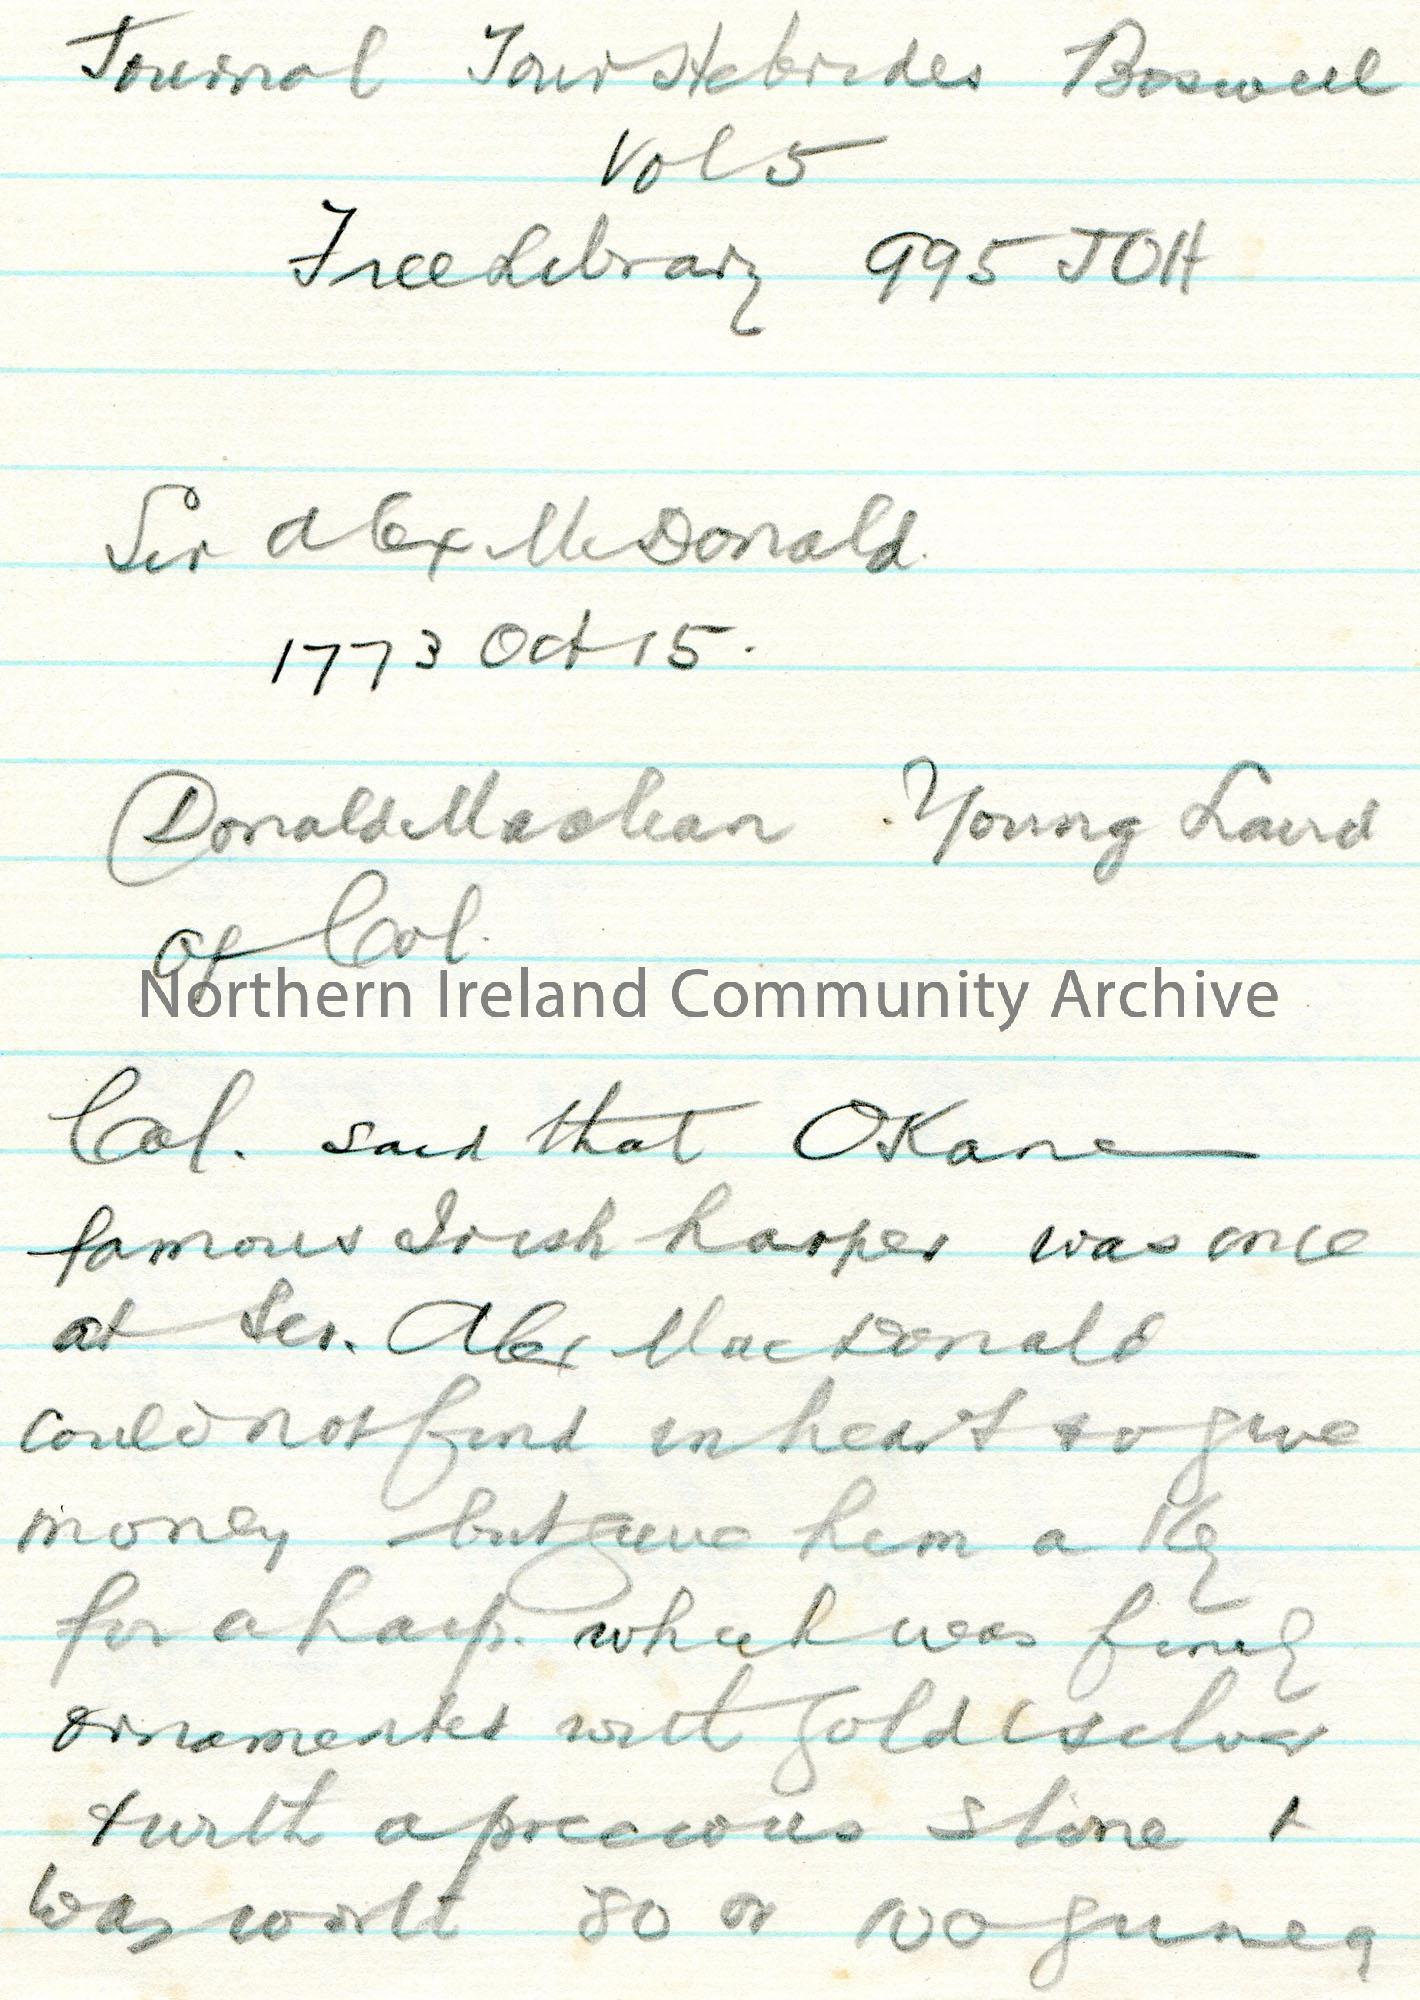 Journal Tour Hebrides Boswell
Vol 5
Free Library 995 JOH
Sir Alex McDonald.
1773 Oct 15.
Donald Maclean Young Laird
of Col.
Northern Ireland Community Archive
Col. said that OKane
famous Irish harper was once
at Sir. Alex MacDonald
could not find in heart to give
money but gave him a Key
for a harp. which was finely
ornamented with gold & silver
& with a precious stone &
was worth 80 or 100 guinea